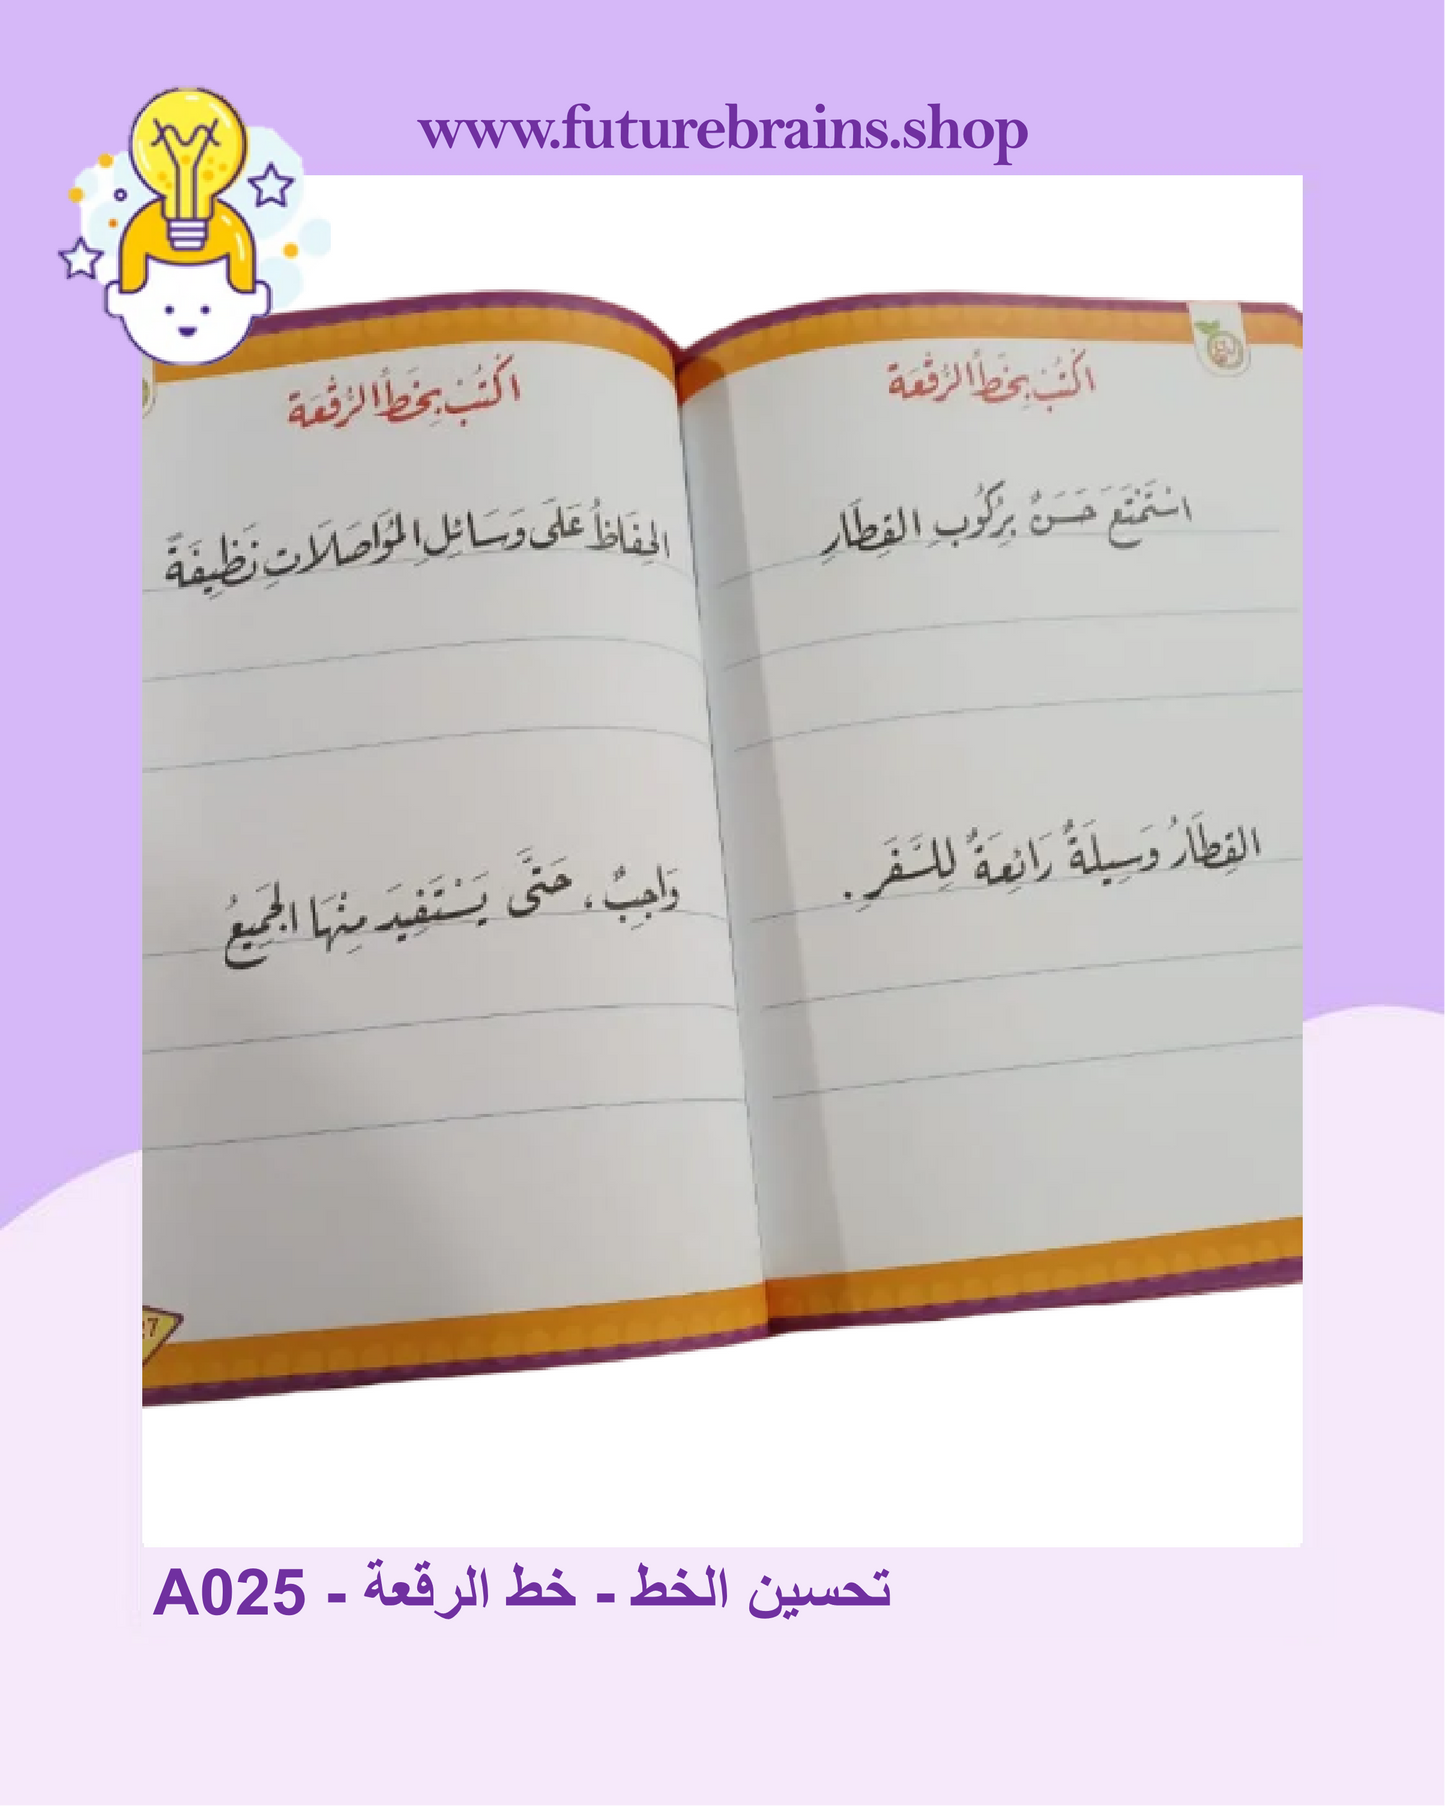 www.futurebrains.shop
اكْتُبْ بِخَطِّ الرُّقْعَة
اسْتَمْتَعَ حَسَنٌ بِرُكُوبِ القِطَارِ
القِطَارُ وَسِيلَةٌ رَائِعَةٌ لِلسَّفَرِ .
اكْتُبْ بِخَطِّ الرُّقْعَة
الحِفَاظُ عَلَى وَسَائِلِ المُوَاصَلَاتِ نَظِيفَةً
وَاجِبٌ ، حَتَّى يَسْتَفِيدَ مِنْهَا الجَمِيعُ
تحسين الخط - خط الرقعة - A025